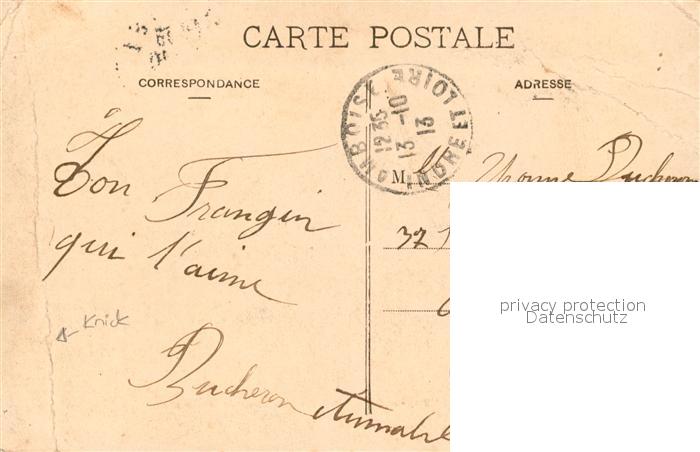 CARTE POSTALE
CORRESPONDANCE
ADRESSE
AMBOISE
INDRE ET LOIRE
12 35
13 -10
13
M lle Yvonne Ducheron
Ton Frangin
qui t'aime
37
Knick
Ducheron
privacy protection
Datenschutz